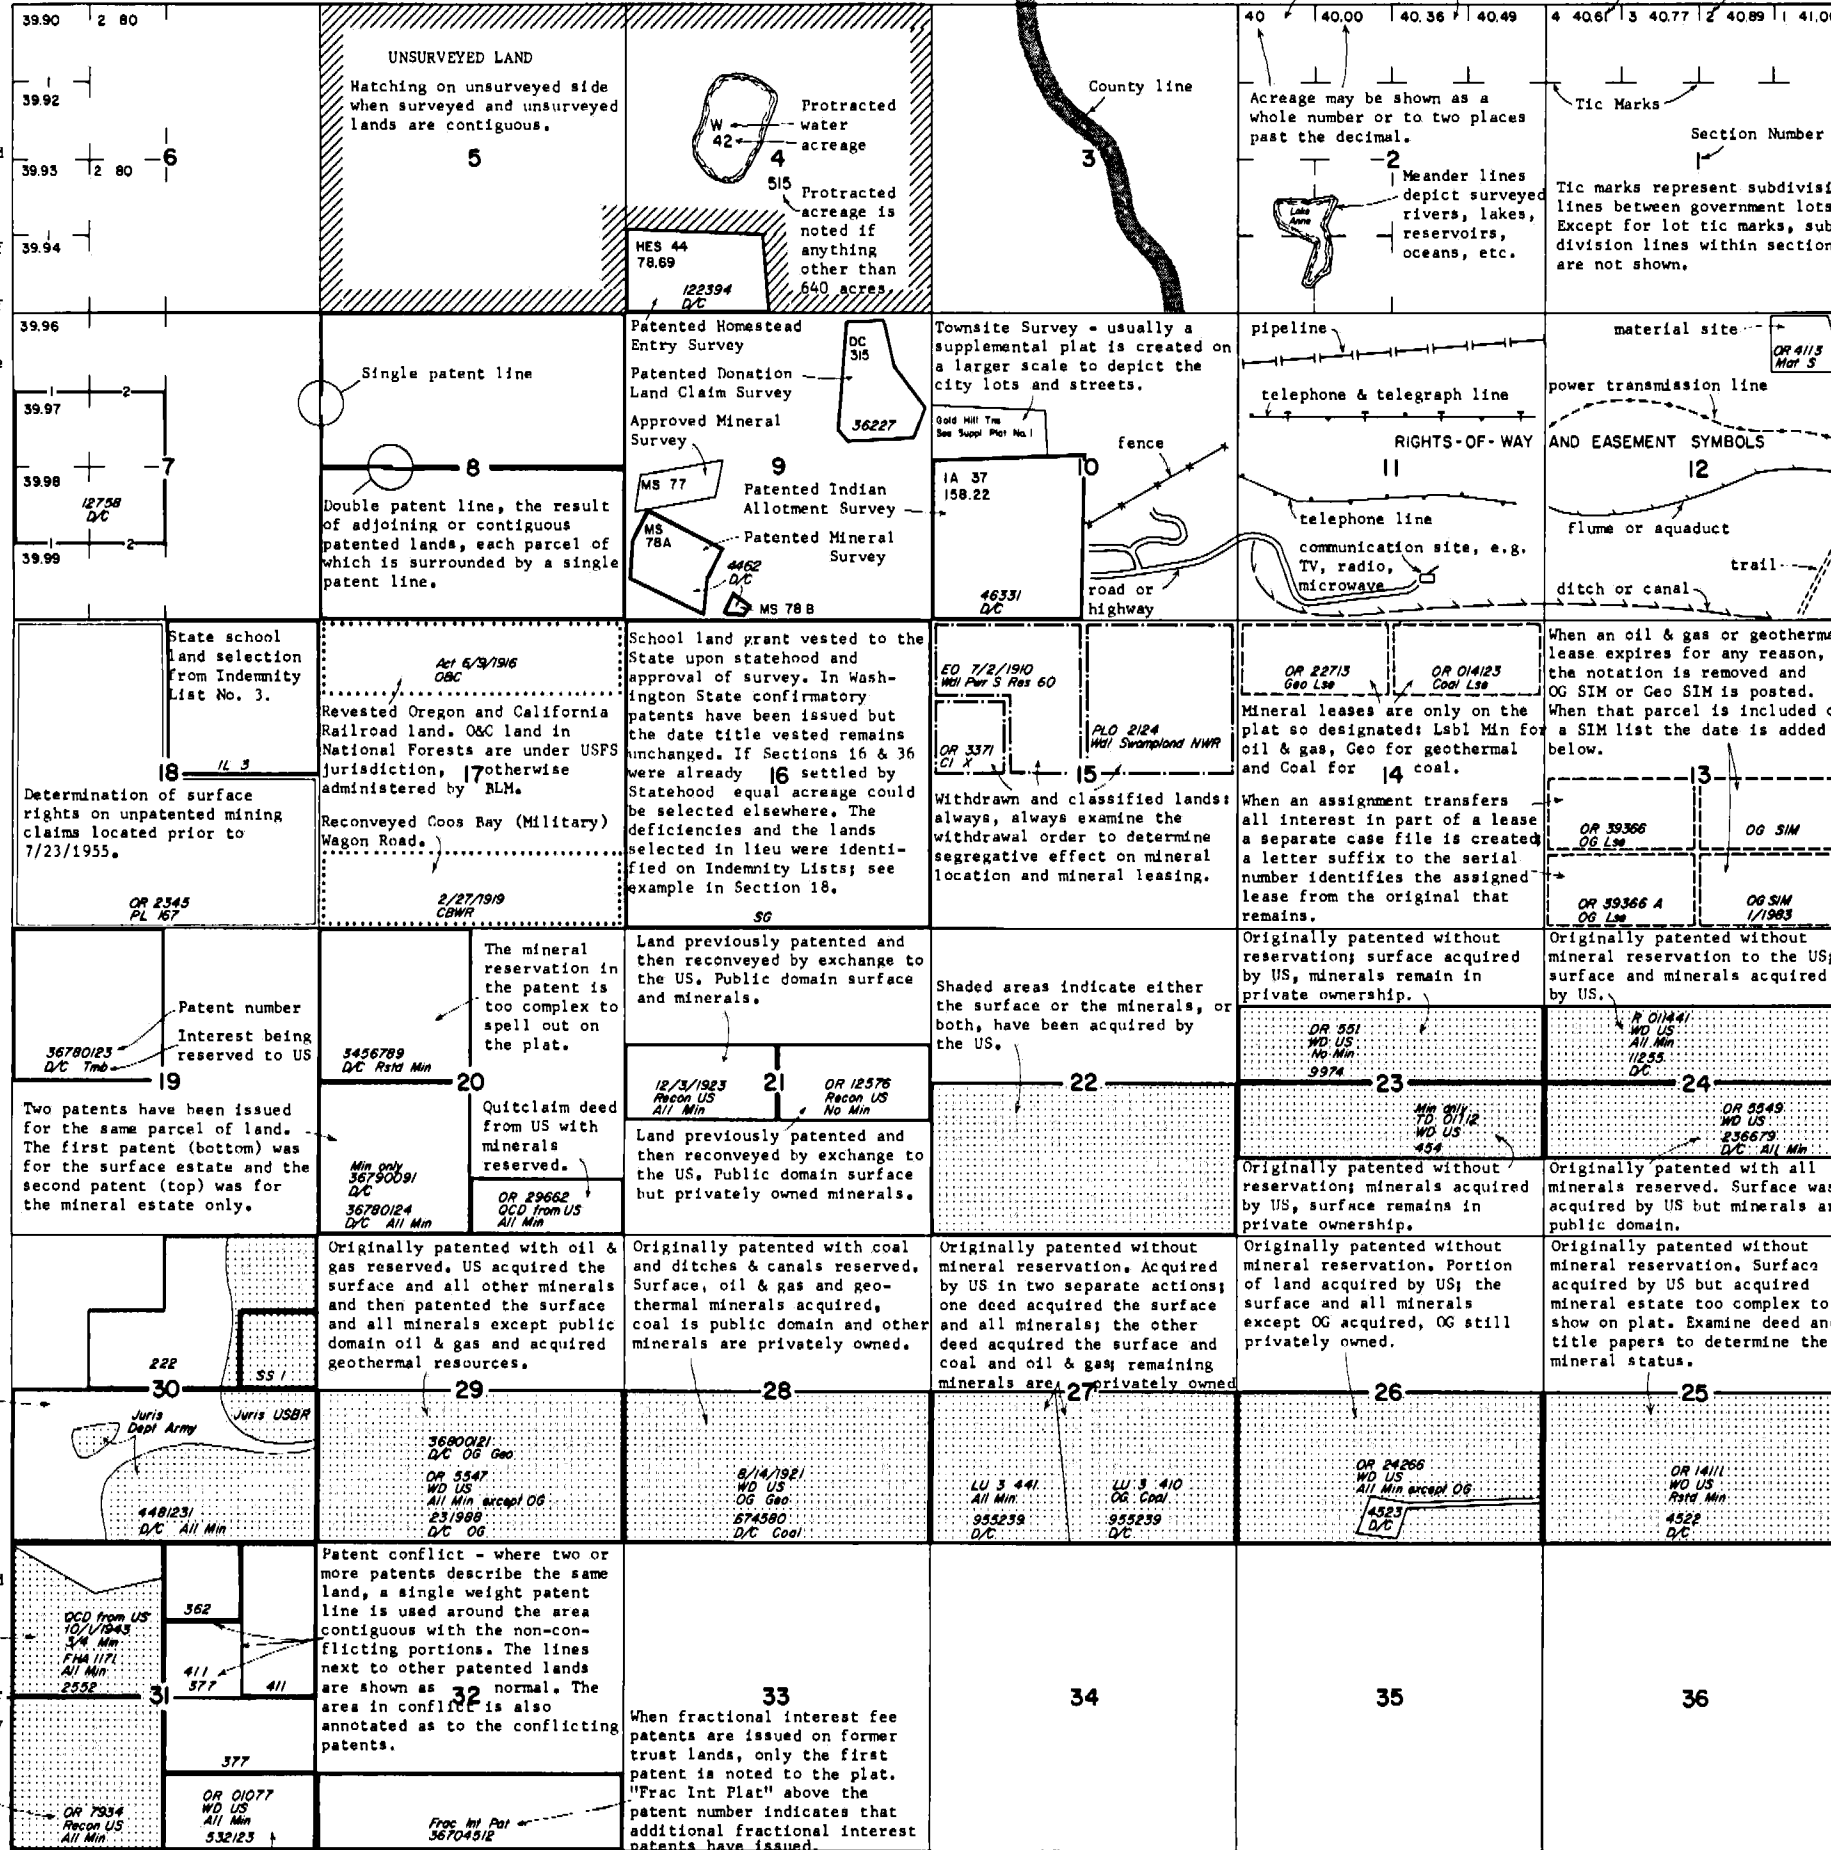 39.90
2 80
1
39.92
39.93
2 80
6
39.94
UNSURVEYED LAND
Hatching on unsurveyed side
when surveyed and unsurveyed
lands are contiguous.
5
W
42
Protracted
water
acreage
4
515
Protracted
acreage is
noted if
anything
other than
640 acres.
HES 44
78.69
122394
D/C
County line
3
40
40.00
40.36
40.49
Acreage may be shown as a
whole number or to two places
past the decimal.
2
Lake
Anne
Meander lines
depict surveyed
rivers, lakes,
reservoirs,
oceans, etc.
4 40.61 3 40.77 2 40.89 1 41.00
Tic Marks
Section Number
1
Tic marks represent subdivisi
lines between government lots
Except for lot tic marks, sub
division lines within section
are not shown.
39.96
1
2
39.97
7
39.98
12758
D/C
1
2
39.99
Single patent line
8
Double patent line, the result
of adjoining or contiguous
patented lands, each parcel of
which is surrounded by a single
patent line.
Patented Homestead
Entry Survey
Patented Donation
Land Claim Survey
DC
315
36227
Approved Mineral
Survey
9
MS 77
Patented Indian
Allotment Survey
MS
78A
Patented Mineral
Survey
4462
D/C
MS 78 B
Townsite Survey - usually a
supplemental plat is created on
a larger scale to depict the
city lots and streets.
Gold Hill Tns
See Suppl Plat No. 1
fence
10
IA 37
158.22
46331
D/C
road or
highway
pipeline
telephone & telegraph line
RIGHTS-OF-WAY AND EASEMENT SYMBOLS
11
telephone line
communication site, e.g.
TV, radio,
microwave
material site
OR 4113
Mat S
power transmission line
12
flume or aquaduct
trail
ditch or canal
State school
land selection
from Indemnity
List No. 3.
18
IL 3
Determination of surface
rights on unpatented mining
claims located prior to
7/23/1955.
OR 2345
PL 167
Act 6/9/1916
O&C
Revested Oregon and California
Railroad land. O&C land in
National Forests are under USFS
jurisdiction, 17 otherwise
administered by BLM.
Reconveyed Coos Bay (Military)
Wagon Road.
2/27/1919
CBWR
School land grant vested to the
State upon statehood and
approval of survey. In Wash-
ington State confirmatory
patents have been issued but
the date title vested remains
unchanged. If Sections 16 & 36
were already 16 settled by
Statehood equal acreage could
be selected elsewhere. The
deficiencies and the lands
selected in lieu were identi-
fied on Indemnity Lists; see
example in Section 18.
SG
EO 7/2/1910
Wdl Pwr S Res 60
OR 3371
Cl X
PLO 2124
Wdl Swampland NWR
15
Withdrawn and classified lands:
always, always examine the
withdrawal order to determine
segregative effect on mineral
location and mineral leasing.
OR 22713
Geo Lse
OR 014123
Coal Lse
Mineral leases are only on the
plat so designated: Lsbl Min for
oil & gas, Geo for geothermal
and Coal for 14 coal.
When an assignment transfers
all interest in part of a lease
a separate case file is created;
a letter suffix to the serial
number identifies the assigned
lease from the original that
remains.
When an oil & gas or geotherma
lease expires for any reason,
the notation is removed and
OG SIM or Geo SIM is posted.
When that parcel is included o
a SIM list the date is added
below.
13
OR 39366
OG Lse
OG SIM
OR 39366 A
OG Lse
OG SIM
1/1983
Patent number
Interest being
reserved to US
36780123
D/C Tmb
19
Two patents have been issued
for the same parcel of land.
The first patent (bottom) was
for the surface estate and the
second patent (top) was for
the mineral estate only.
The mineral
reservation in
the patent is
too complex to
spell out on
the plat.
3456789
D/C Rstd Min
20
Quitclaim deed
from US with
minerals
reserved.
Min only
36790091
D/C
36780124
D/C All Min
OR 29662
QCD from US
All Min
Land previously patented and
then reconveyed by exchange to
the US. Public domain surface
and minerals.
12/3/1923
Recon US
All Min
21
OR 12576
Recon US
No Min
Land previously patented and
then reconveyed by exchange to
the US. Public domain surface
but privately owned minerals.
Shaded areas indicate either
the surface or the minerals, or
both, have been acquired by
the US.
22
Originally patented without
reservation; surface acquired
by US, minerals remain in
private ownership.
OR 551
WD US
No Min
9974
23
Min only
TD 01112
WD US
454
Originally patented without
reservation; minerals acquired
by US, surface remains in
private ownership.
Originally patented without
mineral reservation to the US;
surface and minerals acquired
by US.
R 011441
WD US
All Min
11255
D/C
24
OR 5549
WD US
236679
D/C All Min
Originally patented with all
minerals reserved. Surface was
acquired by US but minerals ar
public domain.
222
SS 1
30
Juris
Dept Army
Juris USBR
4481231
D/C All Min
Originally patented with oil &
gas reserved. US acquired the
surface and all other minerals
and then patented the surface
and all minerals except public
domain oil & gas and acquired
geothermal resources.
29
36800121
D/C OG Geo
OR 5547
WD US
All Min except OG
231988
D/C OG
Originally patented with coal
and ditches & canals reserved.
Surface, oil & gas and geo-
thermal minerals acquired,
coal is public domain and other
minerals are privately owned.
28
8/14/1921
WD US
OG Geo
674580
D/C Coal
Originally patented without
mineral reservation. Acquired
by US in two separate actions;
one deed acquired the surface
and all minerals; the other
deed acquired the surface and
coal and oil & gas; remaining
minerals are privately owned
27
LU 3 441
All Min
955239
D/C
LU 3 410
OG Coal
955239
D/C
Originally patented without
mineral reservation. Portion
of land acquired by US; the
surface and all minerals
except OG acquired, OG still
privately owned.
26
OR 24266
WD US
All Min except OG
4523
D/C
Originally patented without
mineral reservation. Surface
acquired by US but acquired
mineral estate too complex to
show on plat. Examine deed and
title papers to determine the
mineral status.
25
OR 14111
WD US
Rstd Min
4522
D/C
QCD from US
10/1/1943
3/4 Min
FHA 1171
All Min
2552
362
411
377
411
31
377
OR 7934
Recon US
All Min
OR 01077
WD US
All Min
532123
Patent conflict - where two or
more patents describe the same
land, a single weight patent
line is used around the area
contiguous with the non-con-
flicting portions. The lines
next to other patented lands
are shown as normal. The
32
area in conflict is also
annotated as to the conflicting
patents.
Frac Int Pat
36704512
33
When fractional interest fee
patents are issued on former
trust lands, only the first
patent is noted to the plat.
"Frac Int Plat" above the
patent number indicates that
additional fractional interest
patents have issued.
34
35
36